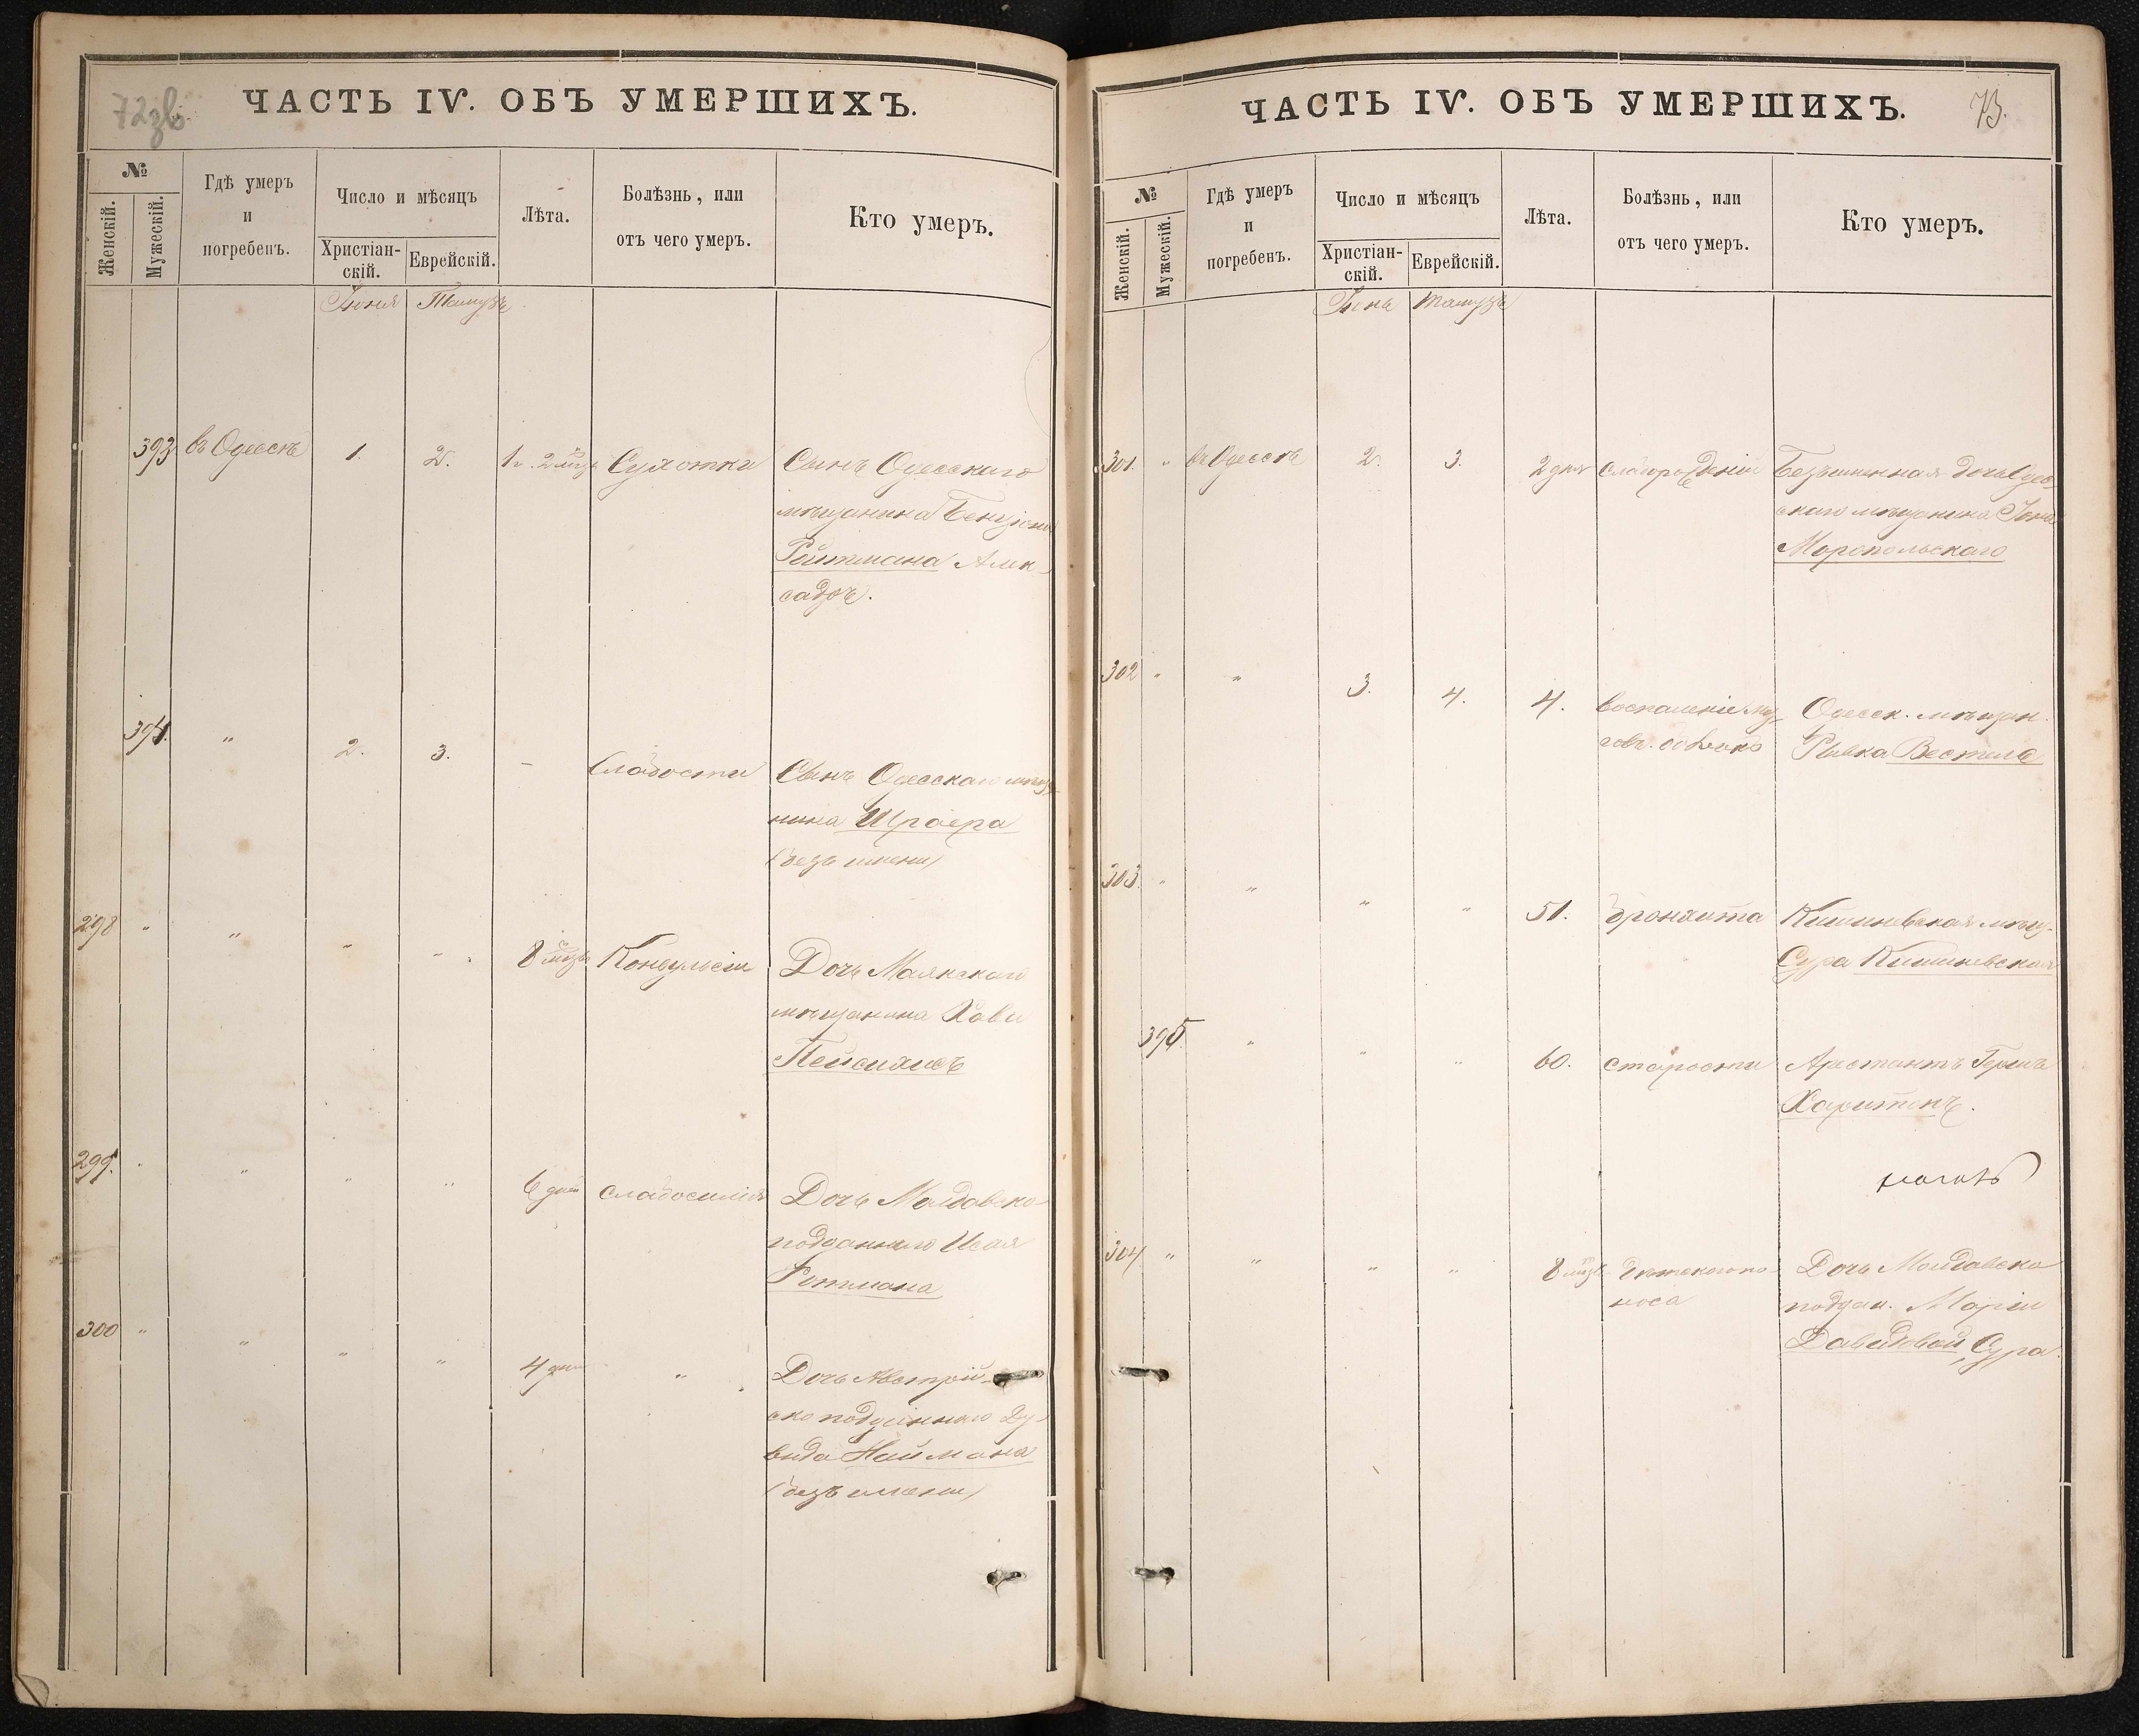 72зв.
ЧАСТЬ IV. ОБЪ УМЕРШИХЪ.
№
Женскій.
Мужескій.
Гдѣ умеръ
и
погребенъ.
Число и мѣсяцъ
Христіан-
скій.
Еврейскій.
Лѣта.
Болѣзнь, или
отъ чего умеръ.
Кто умеръ.
Іюня Тамузъ
393 въ Одессѣ 1. 2. 1 г. 2 мѣс. Сухотки Сынъ Одесскаго
мѣщанина Бенціона
Ройтмана Алек-
садръ.
394. " 2. 3. - Слабости Сынъ Одесскаго мѣща
нина Шраера
(безъ имени)
298 " " " " 8 мѣс. Конвульсіи Дочь Маякскаго
мѣщанина
Пейсихисъ
299. " " " " 6 дней слабосилія Дочь Молдавско
подданнаго Исая
Ротмана
300 " " " " 4 дня " Дочь Австрій-
ско подданнаго Ду-
вида Наймана
(безъ имени)
ЧАСТЬ IV. ОБЪ УМЕРШИХЪ.
73.
№
Женскій.
Мужескій.
Гдѣ умеръ
и
погребенъ.
Число и мѣсяцъ
Христіан-
скій.
Еврейскій.
Лѣта.
Болѣзнь, или
отъ чего умеръ.
Кто умеръ.
Іюнь Тамузъ
301. " въ Одессѣ 2. 3. 2 дня Безъименная дочь Одес-
скаго мѣщанина Іона
Моропольскаго
302 " " 3. 4. 4. воспаленія моз-
Одесск. мѣщан.
Ривка Вестель
303. " " " " 51. бронхита Кишиневская мѣщ.
Сура Кишиневская
395 " " " 60. старости Арестантъ Гершъ
Харитонъ.
304 " " " " 8 мѣс. дѣтскаго по-
носа
Дочь Молдавско
поддан. Маріи
Давидовой, Сура.